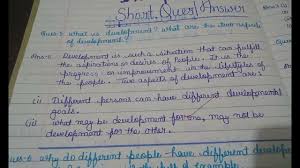 Short Quest Answer
Ques:- what is development? what are the two aspects
of development?
Ans:- Development is such a situation that can fulfill
the aspirations or desires of people. It is the
progress or improvements in the lifestyles of
the people. Two aspects of development are:
(i) Different persons can have different developmental
goals.
(ii) what may be development for one, may not be
development for the other.
Ques:- why do different people have different